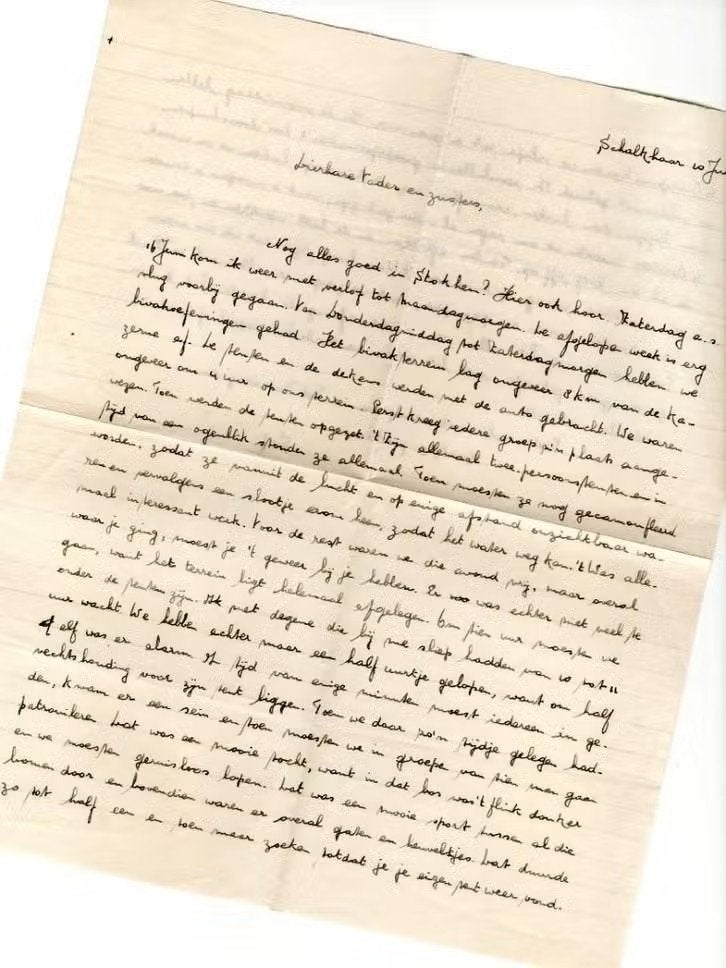 Schalkhaar 10 Ju
Dierbare Vader en zusters,
Nog alles goed in Stokhem? Hier ook hoor. Zaterdag a.s.
16 Juni kom ik weer met verlof tot Maandagmorgen. De afgelopen week is erg
vlug voorbij gegaan. Van Donderdagmiddag tot Zaterdagmorgen hebben we
bivakoefeningen gehad. Het bivakterrein lag ongeveer 8 km van de Ka-
zerne af. De tenten en de dekens werden met de auto gebracht. We waren
ongeveer om 4 uur op ons terrein. Eerst kreeg iedere groep z'n plaats aange-
wezen. Toen werden de tenten opgezet. 't Zijn allemaal twee-persoonstenten en in
tijd van een ogenblik stonden ze allemaal. Toen moesten ze nog gecamoufleerd
worden, zodat ze vanuit de lucht en op enige afstand onzichtbaar wa-
ren en vervolgens een slootje erom heen, zodat het water weg kan. 't Was alle-
maal interessant werk. Voor de rest waren we die avond vrij, maar overal
waar je ging, moest je 't geweer bij je hebben. Er was echter niet veel te
gaan, want het terrein ligt helemaal afgelegen. Om tien uur moesten we
onder de tenten zijn. Ik met degene die bij me sliep hadden van 10 tot 11
uur wacht. We hebben echter maar een half uurtje gelopen, want om half
elf was er alarm. In tijd van enige minuten moest iedereen in ge-
vechtshouding voor zijn tent liggen. Toen we daar zo'n tijdje gelegen had-
den, kwam er een sein en toen moesten we in groepen van tien man gaan
patrouilleren. Dat was een mooie tocht, want in dat bos was 't flink donker
en we moesten geruisloos lopen. Dat was een mooie sport tussen al die
bomen door en bovendien waren er overal gaten en heuveltjes. Dat duurde
zo tot half een en toen maar zoeken totdat je je eigen tent weer vond.